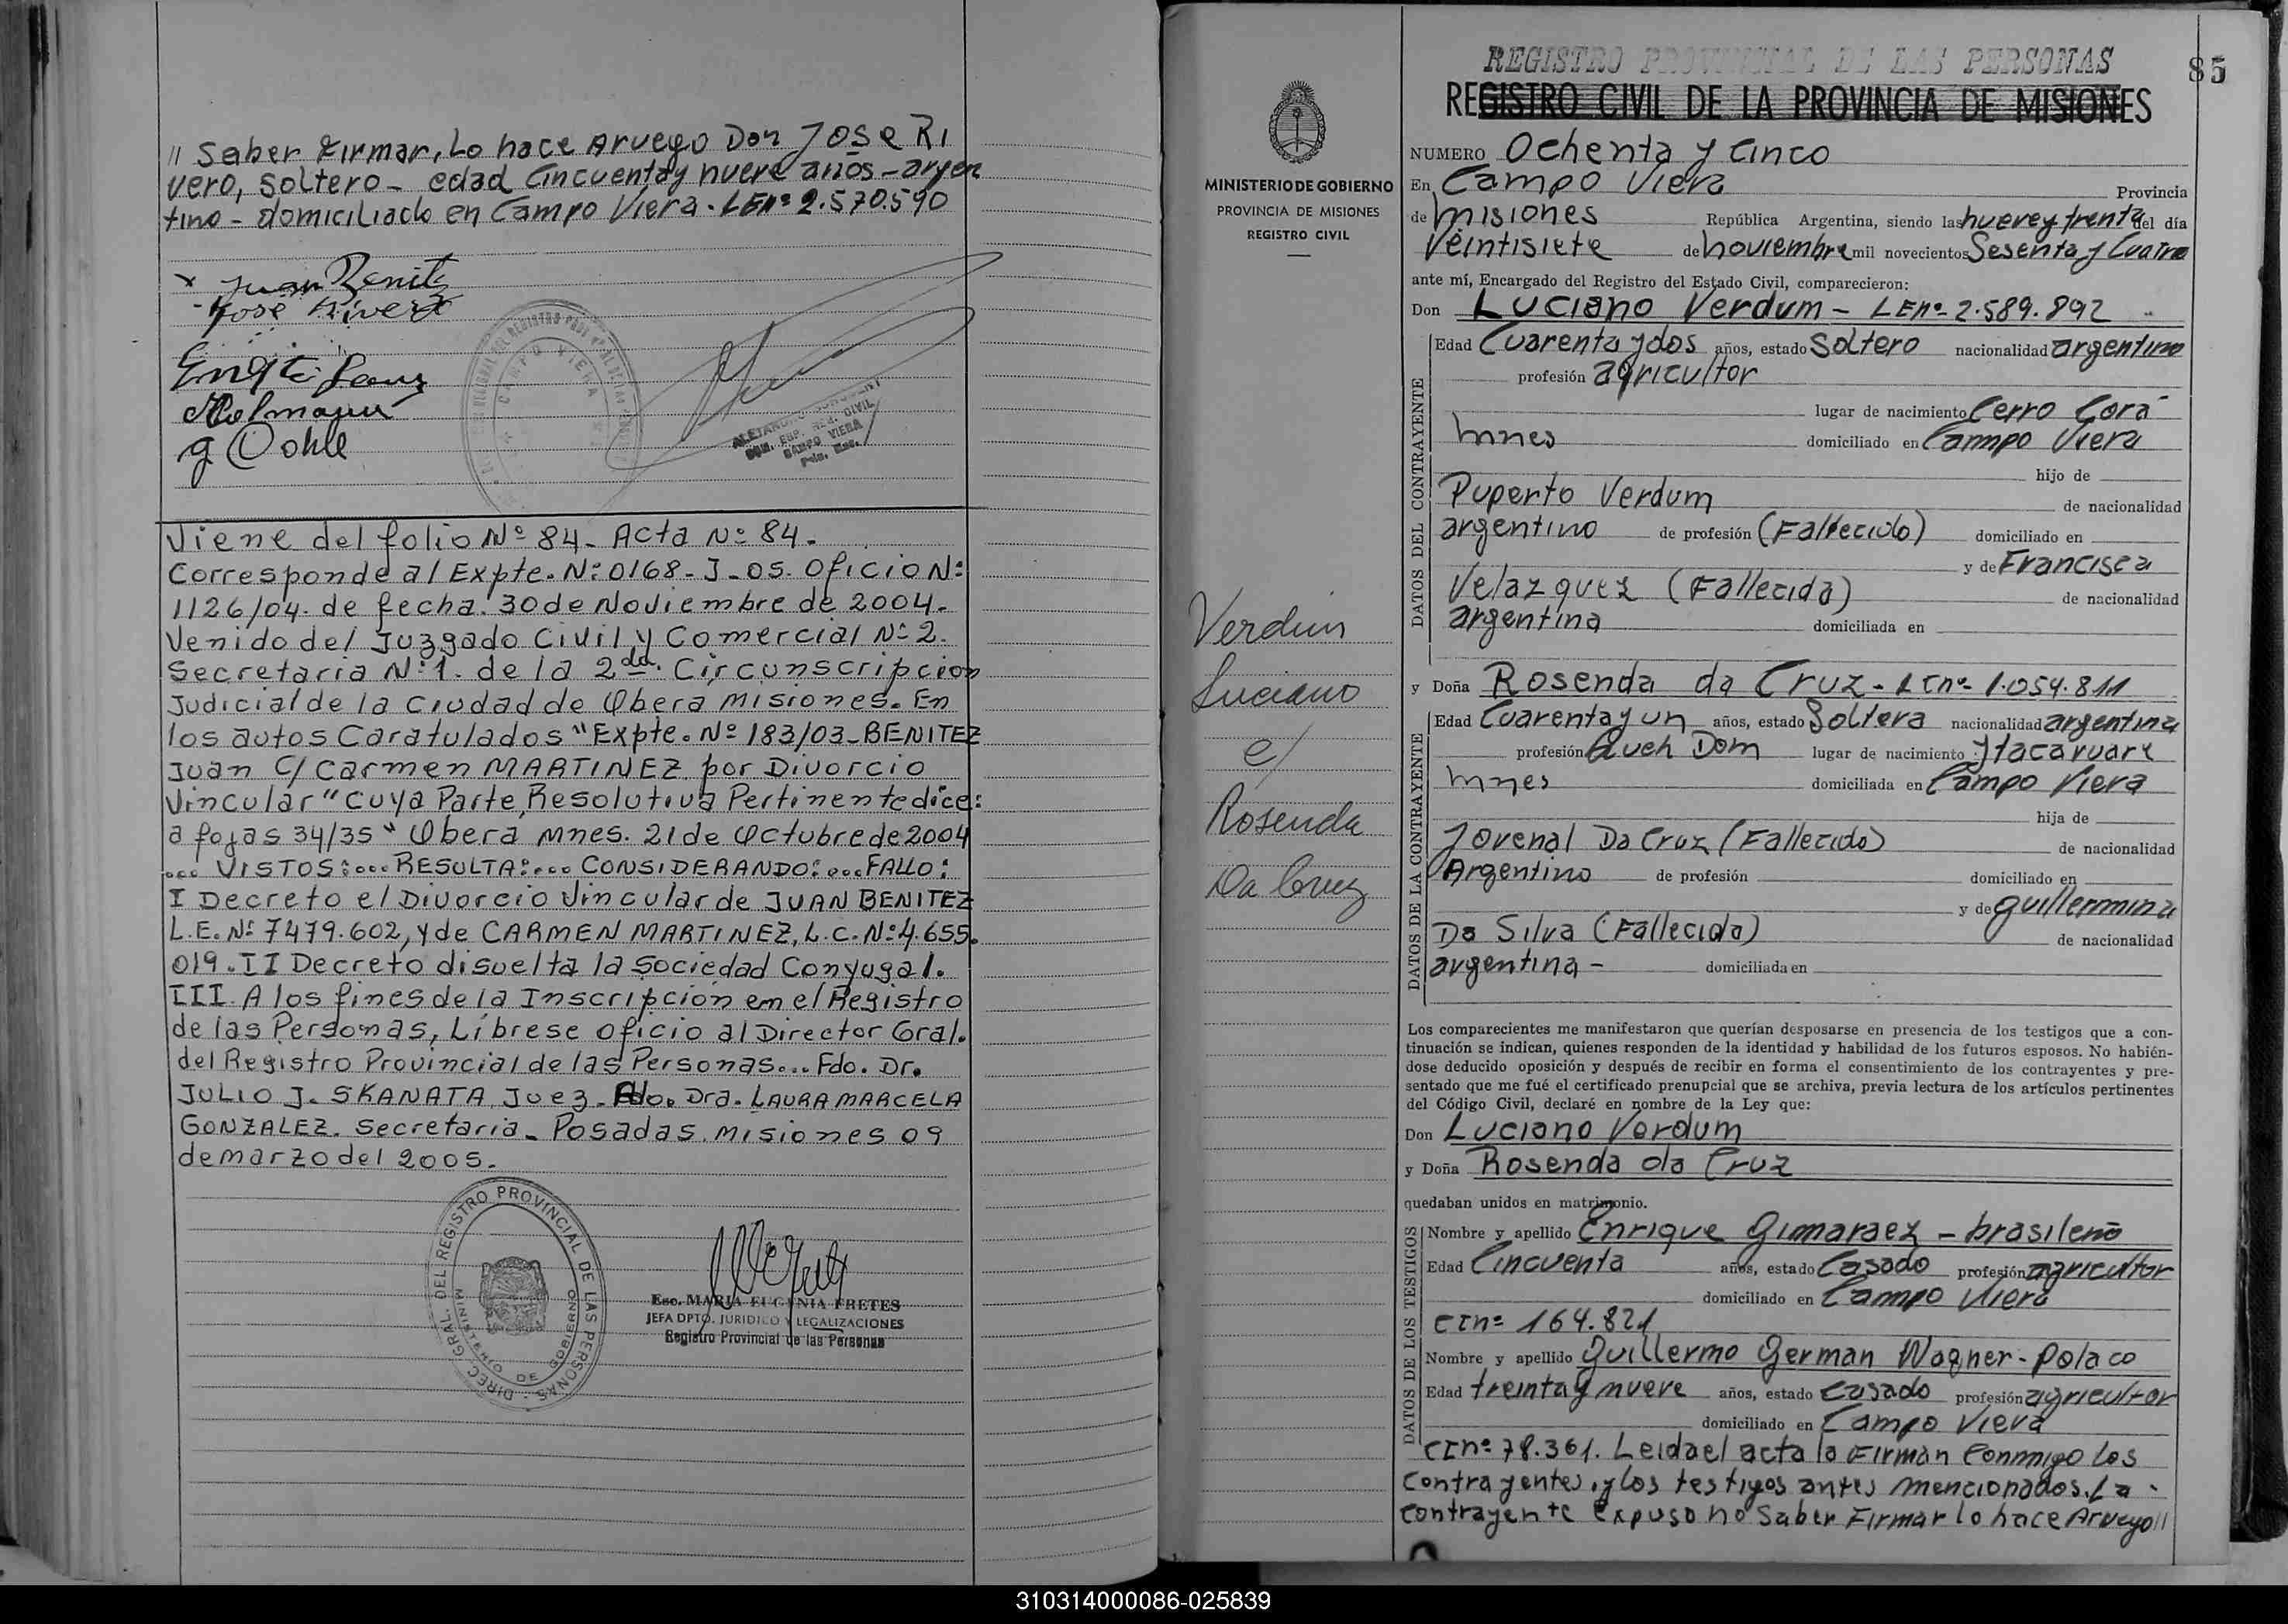 // Saber Firmar, Lo hace Aruego Don Jose Ri
vero, Soltero - edad Cincuenta y nueve años - argen
tino - domiciliado en Campo Viera. LEnº 2.570.590
x Juan Benitz
- José Rivero
g Dohle
Viene del folio Nº 84 - Acta Nº 84.
Corresponde al Expte. Nº 0168-J-05. Oficio Nº
1126/04. de fecha. 30 de Noviembre de 2004.
Venido del Juzgado Civil y Comercial Nº 2.
Secretaria Nº 1. de la 2da. Circunscripcion
Judicial de la Ciudad de Obera Misiones. En
los autos Caratulados "Expte. Nº 183/03-BENITEZ
Juan C/ Carmen MARTINEZ por Divorcio
Vincular" Cuya Parte Resolutiva Pertinente dice:
a fojas 34/35 " Obera Mnes. 21 de Octubre de 2004
... VISTOS:... RESULTA:... CONSIDERANDO:... FALLO:
I Decreto el Divorcio Vincular de JUAN BENITEZ
L.E. Nº 7479.602, y de CARMEN MARTINEZ, L.C. Nº 4.655.
019. II Decreto disuelta la Sociedad Conyugal.
III. A los fines de la Inscripción em el Registro
de las Personas, Líbrese oficio al Director Gral.
del Registro Provincial de las Personas... Fdo. Dr.
JULIO J. SKANATA Juez. Fdo. Dra. LAURA MARCELA
GONZALEZ. Secretaria. Posadas. Misiones 09
de marzo del 2005.
DIREC. GRAL. DEL REGISTRO PROVINCIAL DE LAS PERSONAS
MINISTERIO DE GOBIERNO
Esc. MARIA EUGENIA FRETES
JEFA DPTO. JURIDICO Y LEGALIZACIONES
Registro Provincial de las Personas
REGISTRO PROVINCIAL DE LAS PERSONAS
85
REGISTRO CIVIL DE LA PROVINCIA DE MISIONES
MINISTERIO DE GOBIERNO
PROVINCIA DE MISIONES
REGISTRO CIVIL
Verdun
Luciano
c/
Rosenda
Da Cruz
NUMERO Ochenta y Cinco
En Campo Viera Provincia
de Misiones República Argentina, siendo las nueve y treinta del día
Veintisiete de noviembre mil novecientos Sesenta y Cuatro
ante mí, Encargado del Registro del Estado Civil, comparecieron:
Don Luciano Verdum - LEnº 2.589.892
DATOS DEL CONTRAYENTE
Edad Cuarenta y dos años, estado Soltero nacionalidad argentino
profesión agricultor
lugar de nacimiento Cerro Corá
Mnes domiciliado en Campo Viera
hijo de
Ruperto Verdum de nacionalidad
argentino de profesión (Fallecido) domiciliado en
y de Francisca
Velazquez (Fallecida) de nacionalidad
argentina domiciliada en
y Doña Rosenda da Cruz - LCnº 1.054.811
DATOS DE LA CONTRAYENTE
Edad Cuarenta y un años, estado Soltera nacionalidad argentina
profesión Queh Dom lugar de nacimiento Ytacaruare
Mnes domiciliada en Campo Viera
hija de
Jovenal Da Cruz (Fallecido) de nacionalidad
Argentino de profesión domiciliado en
y de Guillermina
Da Silva (Fallecida) de nacionalidad
argentina - domiciliada en
Los comparecientes me manifestaron que querían desposarse en presencia de los testigos que a con-
tinuación se indican, quienes responden de la identidad y habilidad de los futuros esposos. No habién-
dose deducido oposición y después de recibir en forma el consentimiento de los contrayentes y pre-
sentado que me fué el certificado prenupcial que se archiva, previa lectura de los artículos pertinentes
del Código Civil, declaré en nombre de la Ley que:
Don Luciano Verdum
y Doña Rosenda da Cruz
quedaban unidos en matrimonio.
DATOS DE LOS TESTIGOS
Nombre y apellido Enrique Gimaraez - brasileño
Edad Cincuenta años, estado Casado profesión agricultor
domiciliado en Campo Viera
CInº 164.821
Nombre y apellido Guillermo German Wagner - Polaco
Edad treinta y nueve años, estado Casado profesión agricultor
domiciliado en Campo Viera
CInº 78.361. Leida el acta la Firman Conmigo los
Contrayentes, y los testigos antes mencionados. La
Contrayente expuso no Saber Firmar lo hace Aruego //
310314000086-025839